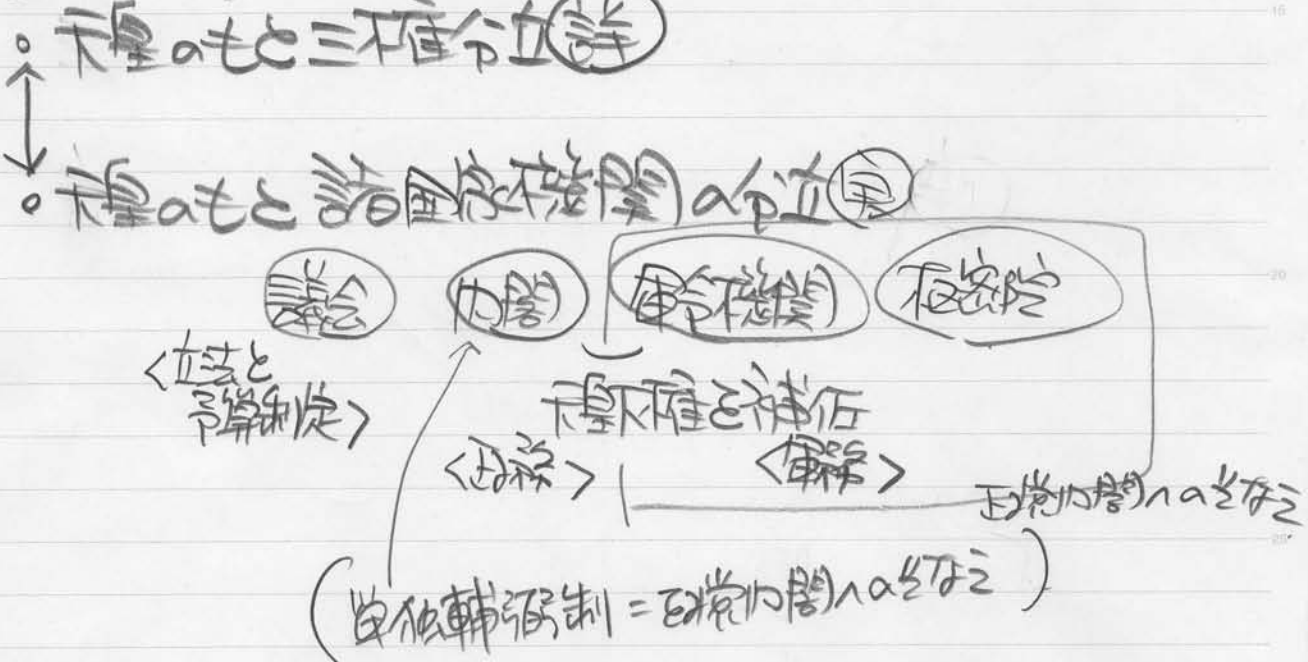 。天皇のもと三権分立 詳
。天皇のもと 諸国家機関の分立 実
議会 内閣 軍令機関 枢密院
<立法と
予算制定>
天皇大権を補佐
<政務> <軍務>
政党内閣へのそなえ
(単独輔弼制=政党内閣へのそなえ)
15
20
25